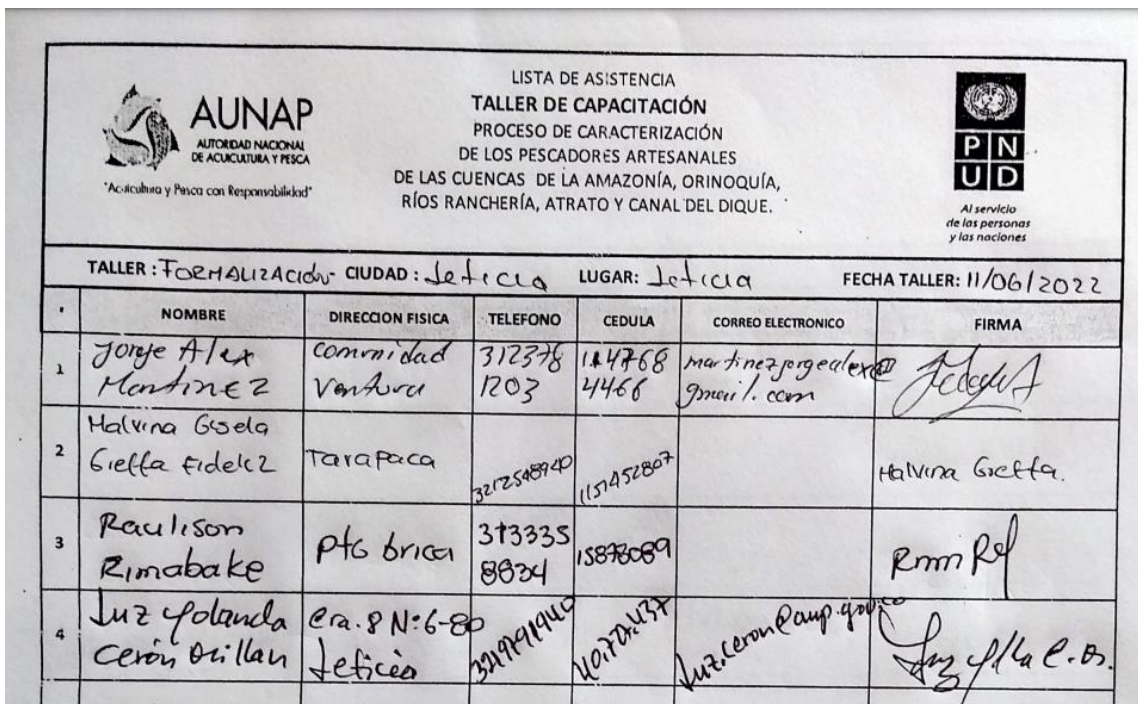 AUNAP
AUTORIDAD NACIONAL
DE ACUICULTURA Y PESCA
"Acuicultura y Pesca con Responsabilidad"
LISTA DE ASISTENCIA
TALLER DE CAPACITACIÓN
PROCESO DE CARACTERIZACIÓN
DE LOS PESCADORES ARTESANALES
DE LAS CUENCAS DE LA AMAZONÍA, ORINOQUÍA,
RÍOS RANCHERÍA, ATRATO Y CANAL DEL DIQUE.
P N
U D
Al servicio
de las personas
y las naciones
TALLER: FORMALIZACIÓN- CIUDAD: Leticia LUGAR: Leticia FECHA TALLER: 11/06/2022
NOMBRE DIRECCION FISICA TELEFONO CEDULA CORREO ELECTRONICO FIRMA
1
Jorge Alex
Martinez
Ventura
312378
1203
4466
gmail.com
2
Malvina Gisela
Tarapaca
3212548940
Malvina
3
Raulison
Rimabake
pto brica
8834
15873089
4
Luz Yolanda
Cerón
Cra. 8 Nº 6-80
Leticia